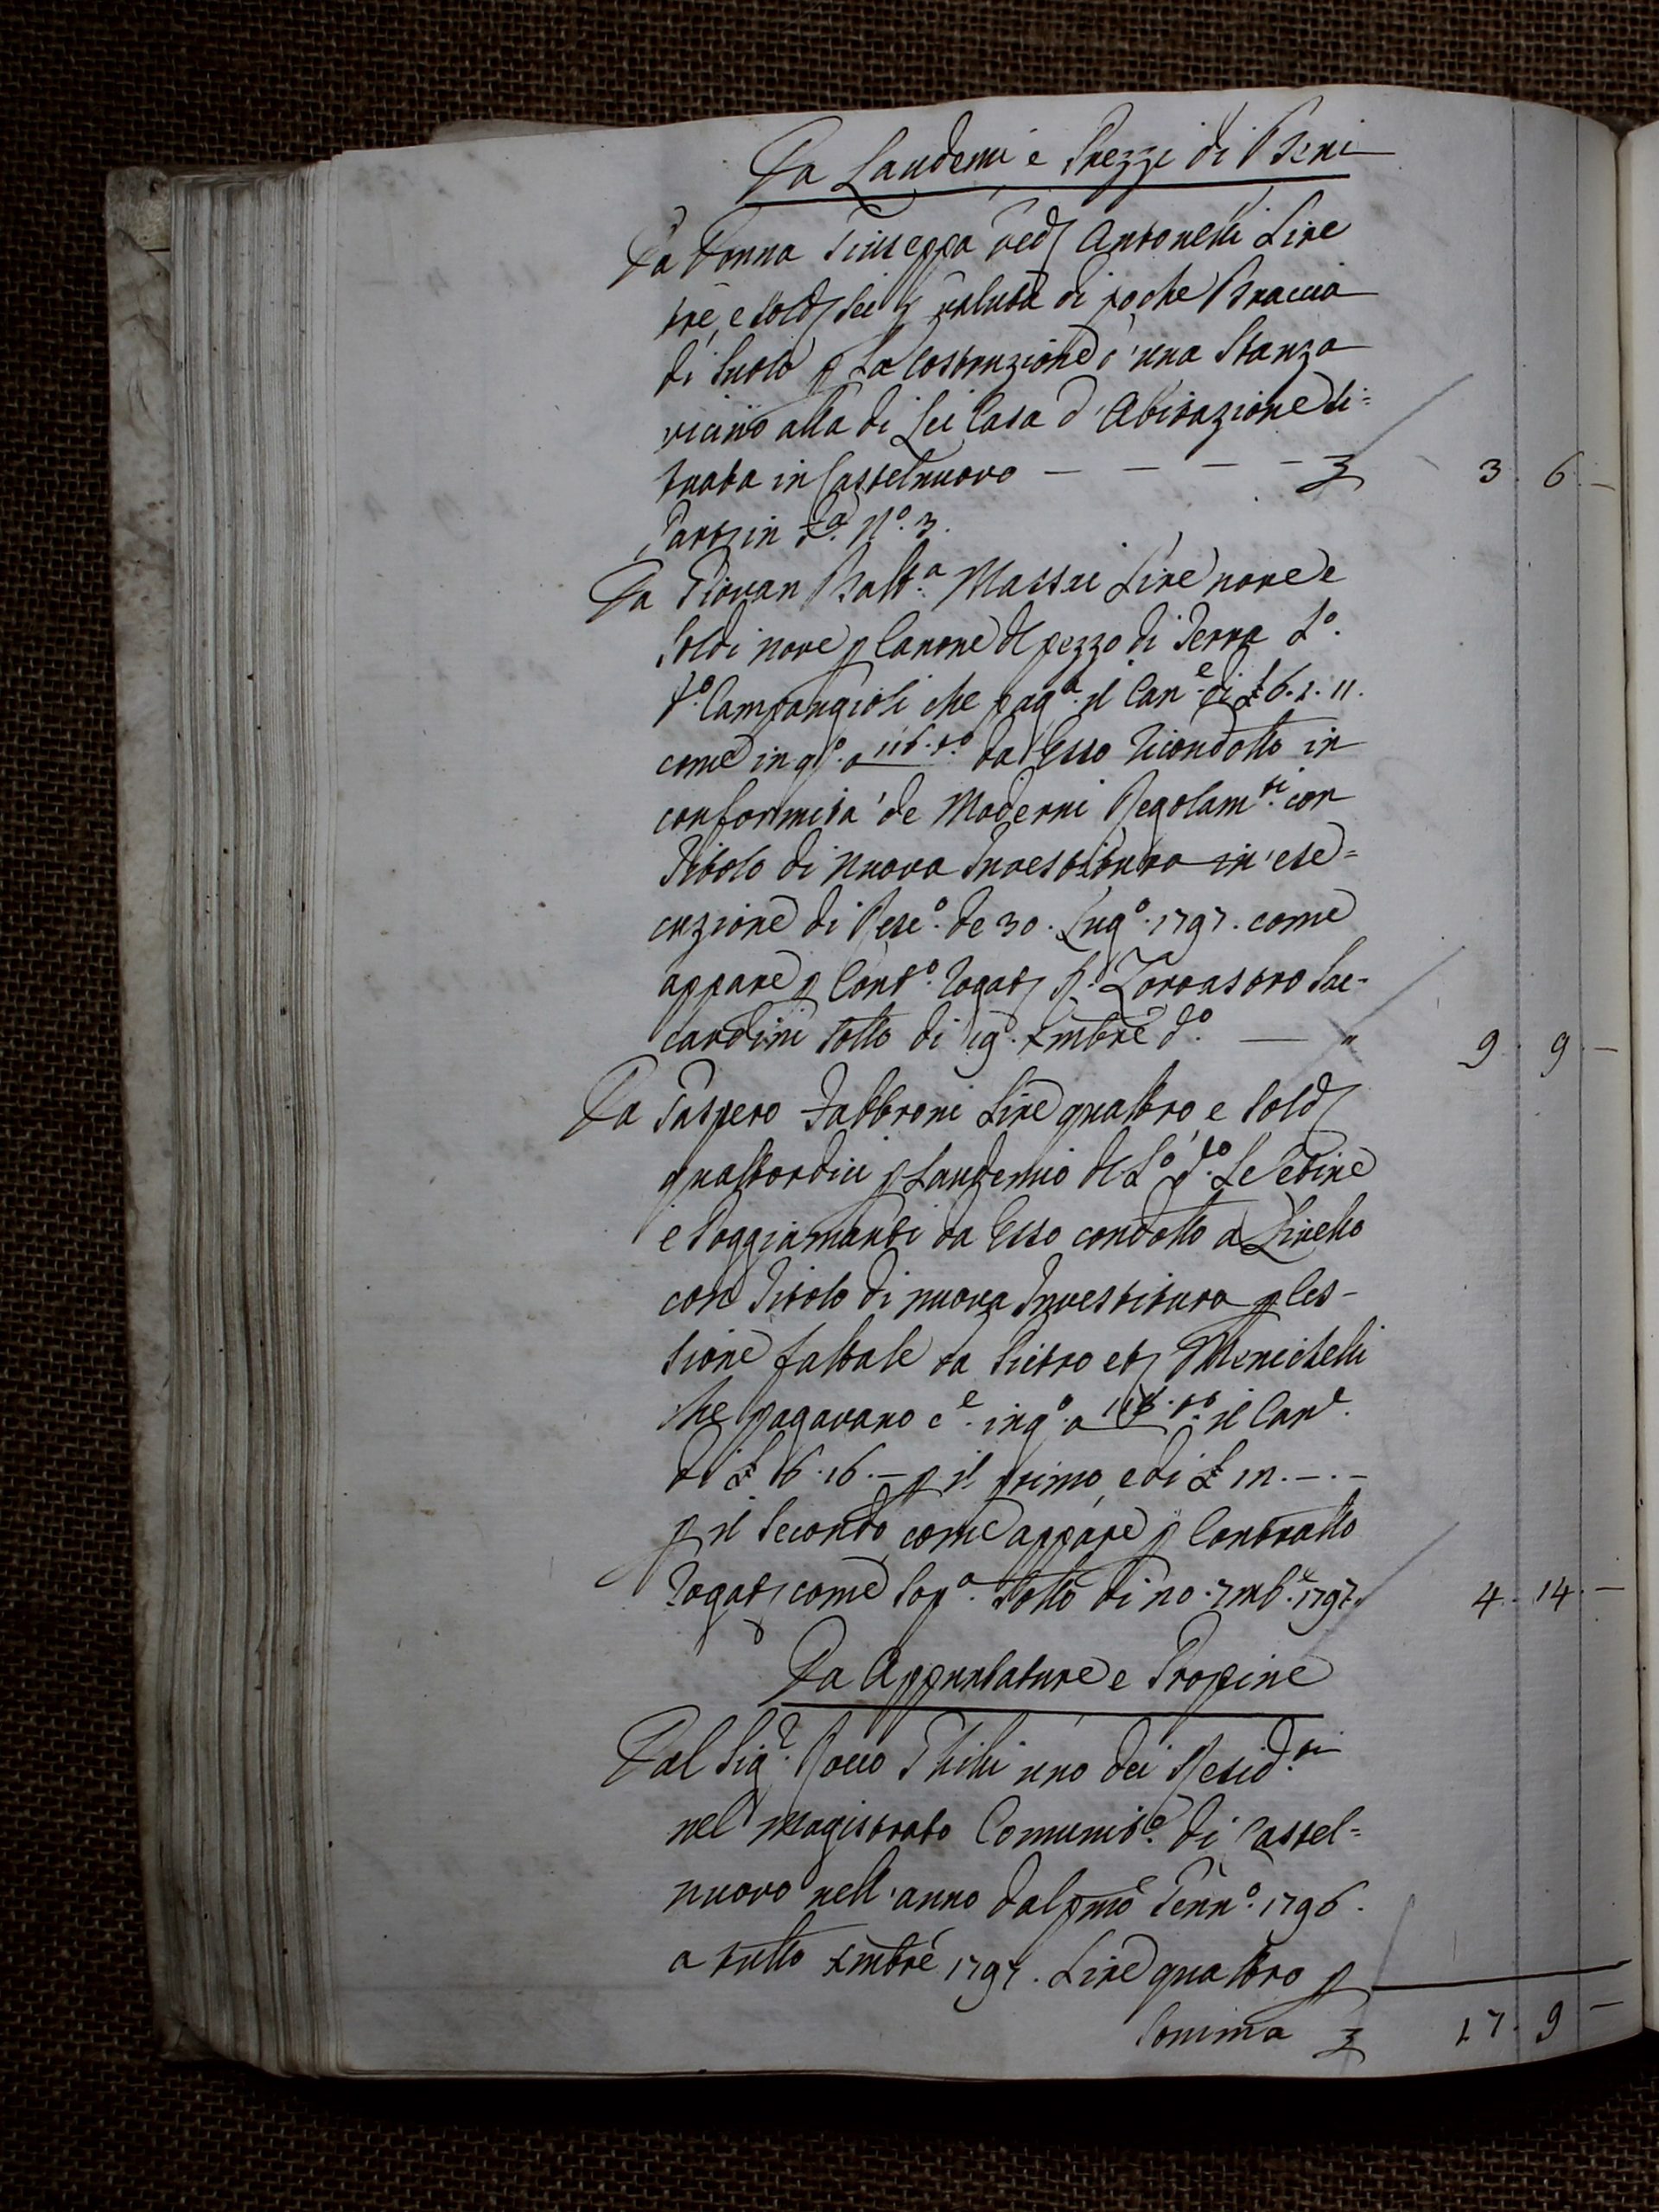 Da Laudemi e Prezzi di Beni
Da Donna Giuseppa Ved. Antonelli Lire
tre, e sold. sei p valuta di poche Braccia
di Suolo p la Costruzione d'una Stanza
vicino alla di Lei Casa d'Abitazione si=
tuata in Castelnuovo — — — — £ 3. 6. —
Part. in F.a N.o 3.
Da Giovan Batt.a Massei Lire nove e
Soldi nove p Canone del pezzo di Terra L.o
d.o Campangioli che pag.a il Can.e di £ 6. 2. 11.
come in q.o a 116. da Esso Ricondotto in
conformità de Moderni Regolam.ti con
Titolo di nuova Investitura in ese=
cuzione di Resc.o de 30. Lug.o 1797. come
appare p Cont.o Rogat. S. Zoroastro Sac=
cardini sotto di 19. Xmbre d.o — " 9. 9. —
Da Gaspero Fabbroni Lire quattro, e sold.
quattordici p Laudemio del L.o d.o Le Cetine
e Poggiamanti da Esso condotto a Livello
con Titolo di nuova Investitura p Ces=
sione fattale da Pietro et. Menichelli
che pagavano c.e in q.o a 116. il Can.e
di £ 6. 16. — p il primo, e di £ 12. —. —
p il Secondo, come appare p Contratto
Rogat. come Sop.a sotto di 20. 7mb.e 1797. 4. 14. —
Da Appuntature e Propine
Dal Sig.r Rocco Ghilli uno dei Resid.ti
nel Magistrato Comunit.o di Castel=
nuovo nell'anno dal pmo Genn.o 1796.
a tutto Xmbre 1797. Lire quattro p
Somma £ 17. 9 —